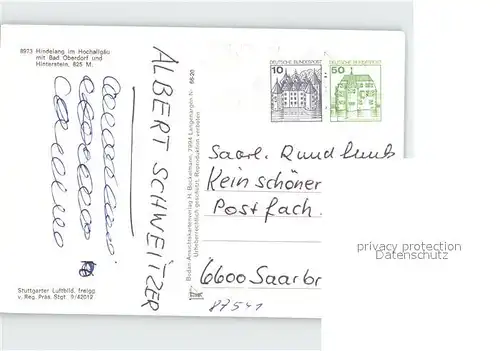 8973 Hindelang im Hochallgäu
mit Bad Oberdorf und
Hinterstein, 825 M.
ALBERT SCHWEITZER
Stuttgarter Luftbild, freigg.
v. Reg. Präs. Stgt. 9/42012
Boden-Ansichtskartenverlag H. Bockelmann, 7994 Langenargen Nr. 66-20
Urheberrechtlich geschützt, Reproduktion verboten
DEUTSCHE BUNDESPOST
10
DEUTSCHE BUNDESPOST
50
Saarl. Rundfunk
Kein schöner
Postfach.
6600 Saarbr
87541
privacy protection
Oldthing.de